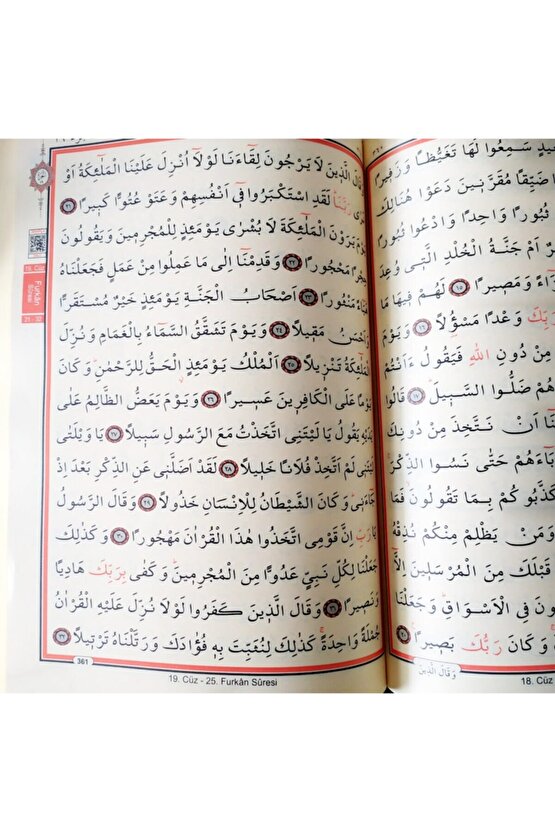 سَمِعُوا لَهَا تَغَيُّظًا وَزَفِيرًا
ضَيِّقًا مُقَرَّنِينَ دَعَوْا هُنَالِكَ
ثُبُورًا وَاحِدًا وَادْعُوا ثُبُورًا
اَمْ جَنَّةُ الْخُلْدِ الَّتِي وُعِدَ
وَمَصِيرًا ﴿١٥﴾ لَهُمْ فِيهَا مَا
رَبِّكَ وَعْدًا مَسْؤُلًا ﴿١٦﴾ وَيَوْمَ
مِنْ دُونِ اللّٰهِ فَيَقُولُ ءَاَنْتُمْ
هُمْ ضَلُّوا السَّبِيلَ ﴿١٧﴾ قَالُوا
اَنْ نَتَّخِذَ مِنْ دُونِكَ
حَتّٰى نَسُوا الذِّكْرَ
كَذَّبُوكُمْ بِمَا تَقُولُونَ فَمَا
وَمَنْ يَظْلِمْ مِنْكُمْ نُذِقْهُ
قَبْلَكَ مِنَ الْمُرْسَلِينَ اِلَّا
فِي الْاَسْوَاقِ وَجَعَلْنَا
وَكَانَ رَبُّكَ بَصِيرًا ﴿٢٠﴾
وَقَالَ الَّذِينَ
18. Cüz
وَقَالَ الَّذِينَ لَا يَرْجُونَ لِقَاءَنَا لَوْلَا اُنْزِلَ عَلَيْنَا الْمَلٰئِكَةُ اَوْ
نَرٰى رَبَّنَا لَقَدِ اسْتَكْبَرُوا فِي اَنْفُسِهِمْ وَعَتَوْ عُتُوًّا كَبِيرًا ﴿٢١﴾
يَوْمَ يَرَوْنَ الْمَلٰئِكَةَ لَا بُشْرٰى يَوْمَئِذٍ لِلْمُجْرِمِينَ وَيَقُولُونَ
حِجْرًا مَحْجُورًا ﴿٢٢﴾ وَقَدِمْنَا اِلٰى مَا عَمِلُوا مِنْ عَمَلٍ فَجَعَلْنَاهُ
هَبَاءً مَنْثُورًا ﴿٢٣﴾ اَصْحَابُ الْجَنَّةِ يَوْمَئِذٍ خَيْرٌ مُسْتَقَرًّا
وَاَحْسَنُ مَقِيلًا ﴿٢٤﴾ وَيَوْمَ تَشَقَّقُ السَّمَاءُ بِالْغَمَامِ وَنُزِّلَ
الْمَلٰئِكَةُ تَنْزِيلًا ﴿٢٥﴾ اَلْمُلْكُ يَوْمَئِذٍ الْحَقُّ لِلرَّحْمٰنِ وَكَانَ
يَوْمًا عَلَى الْكَافِرِينَ عَسِيرًا ﴿٢٦﴾ وَيَوْمَ يَعَضُّ الظَّالِمُ عَلٰى
يَدَيْهِ يَقُولُ يَا لَيْتَنِي اتَّخَذْتُ مَعَ الرَّسُولِ سَبِيلًا ﴿٢٧﴾ يَا وَيْلَتٰى
لَيْتَنِي لَمْ اَتَّخِذْ فُلَانًا خَلِيلًا ﴿٢٨﴾ لَقَدْ اَضَلَّنِي عَنِ الذِّكْرِ بَعْدَ اِذْ
جَاءَنِي وَكَانَ الشَّيْطَانُ لِلْاِنْسَانِ خَذُولًا ﴿٢٩﴾ وَقَالَ الرَّسُولُ
يَا رَبِّ اِنَّ قَوْمِي اتَّخَذُوا هٰذَا الْقُرْاٰنَ مَهْجُورًا ﴿٣٠﴾ وَكَذٰلِكَ
جَعَلْنَا لِكُلِّ نَبِيٍّ عَدُوًّا مِنَ الْمُجْرِمِينَ وَكَفٰى بِرَبِّكَ هَادِيًا
وَنَصِيرًا ﴿٣١﴾ وَقَالَ الَّذِينَ كَفَرُوا لَوْلَا نُزِّلَ عَلَيْهِ الْقُرْاٰنُ
جُمْلَةً وَاحِدَةً كَذٰلِكَ لِنُثَبِّتَ بِهِ فُؤَادَكَ وَرَتَّلْنَاهُ تَرْتِيلًا ﴿٣٢﴾
361
19. Cüz - 25. Furkân Sûresi
19. Cüz
Furkân
Sûresi